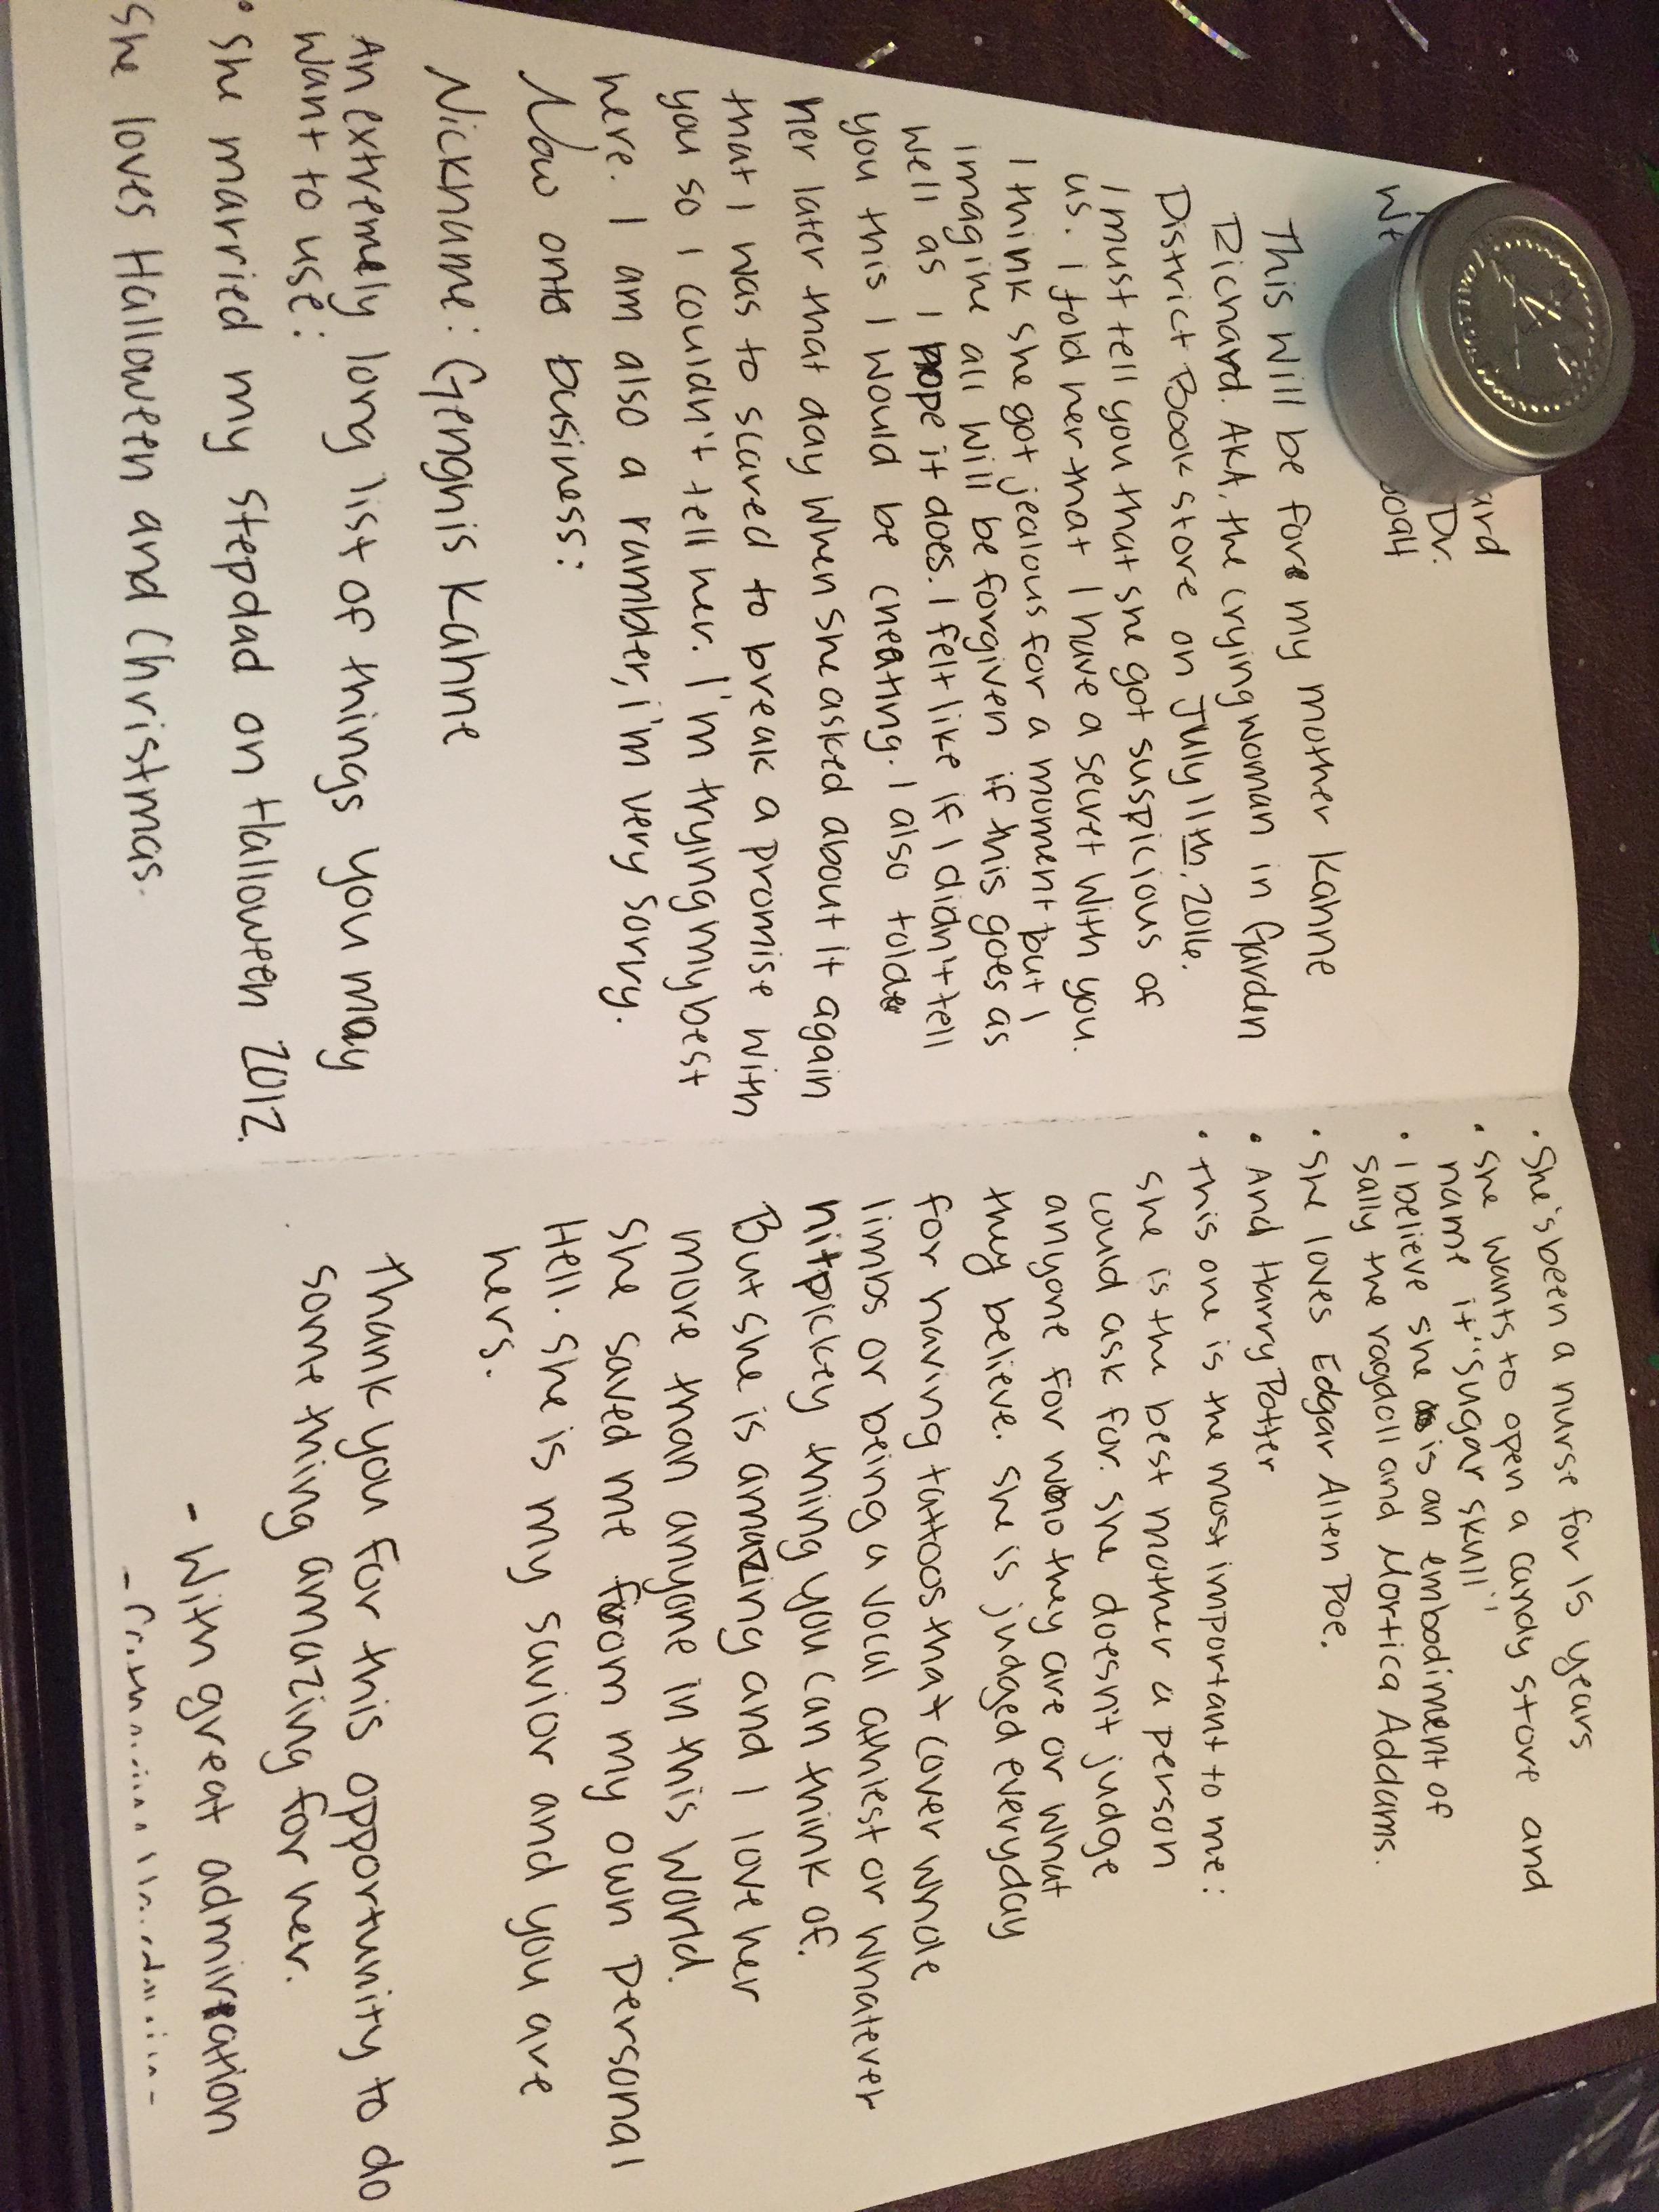 ard
Dr.
This will be for my mother Kahne
Richard. AKA, the crying woman in Garden
District Book store on July 11th, 2016.
I must tell you that she got suspicious of
us. I told her that I have a secret with you.
I think she got jealous for a moment but I
imagine all will be forgiven if this goes as
well as I hope it does. I felt like if I didn't tell
you this I would be cheating. I also told
her later that day when she asked about it again
that I was to scared to break a promise with
you so I couldn't tell her. I'm trying my best
here. I am also a rambler, i'm very sorry.
Now onto business:
Nickname: Genghis Kahne
An extremely long list of things you may
want to use:
• She married my stepdad on Halloween 2012.
She loves Halloween and Christmas.
• She's been a nurse for 15 years
• She wants to open a candy store and
name it "Sugar Skull"
• I believe she is an embodiment of
Sally the ragdoll and Mortica Addams.
• She loves Edgar Allen Poe.
• And Harry Potter
• this one is the most important to me:
She is the best mother a person
could ask for. She doesn't judge
anyone for who they are or what
they believe. She is judged everyday
for having tattoos that cover whole
limbs or being a vocal athiest or whatever
nitpickey thing you can think of.
But she is amazing and I love her
more than anyone in this world.
She saved me from my own personal
Hell. She is my savior and you are
hers.
Thank you for this opportunity to do
something amazing for her.
- With great admiration